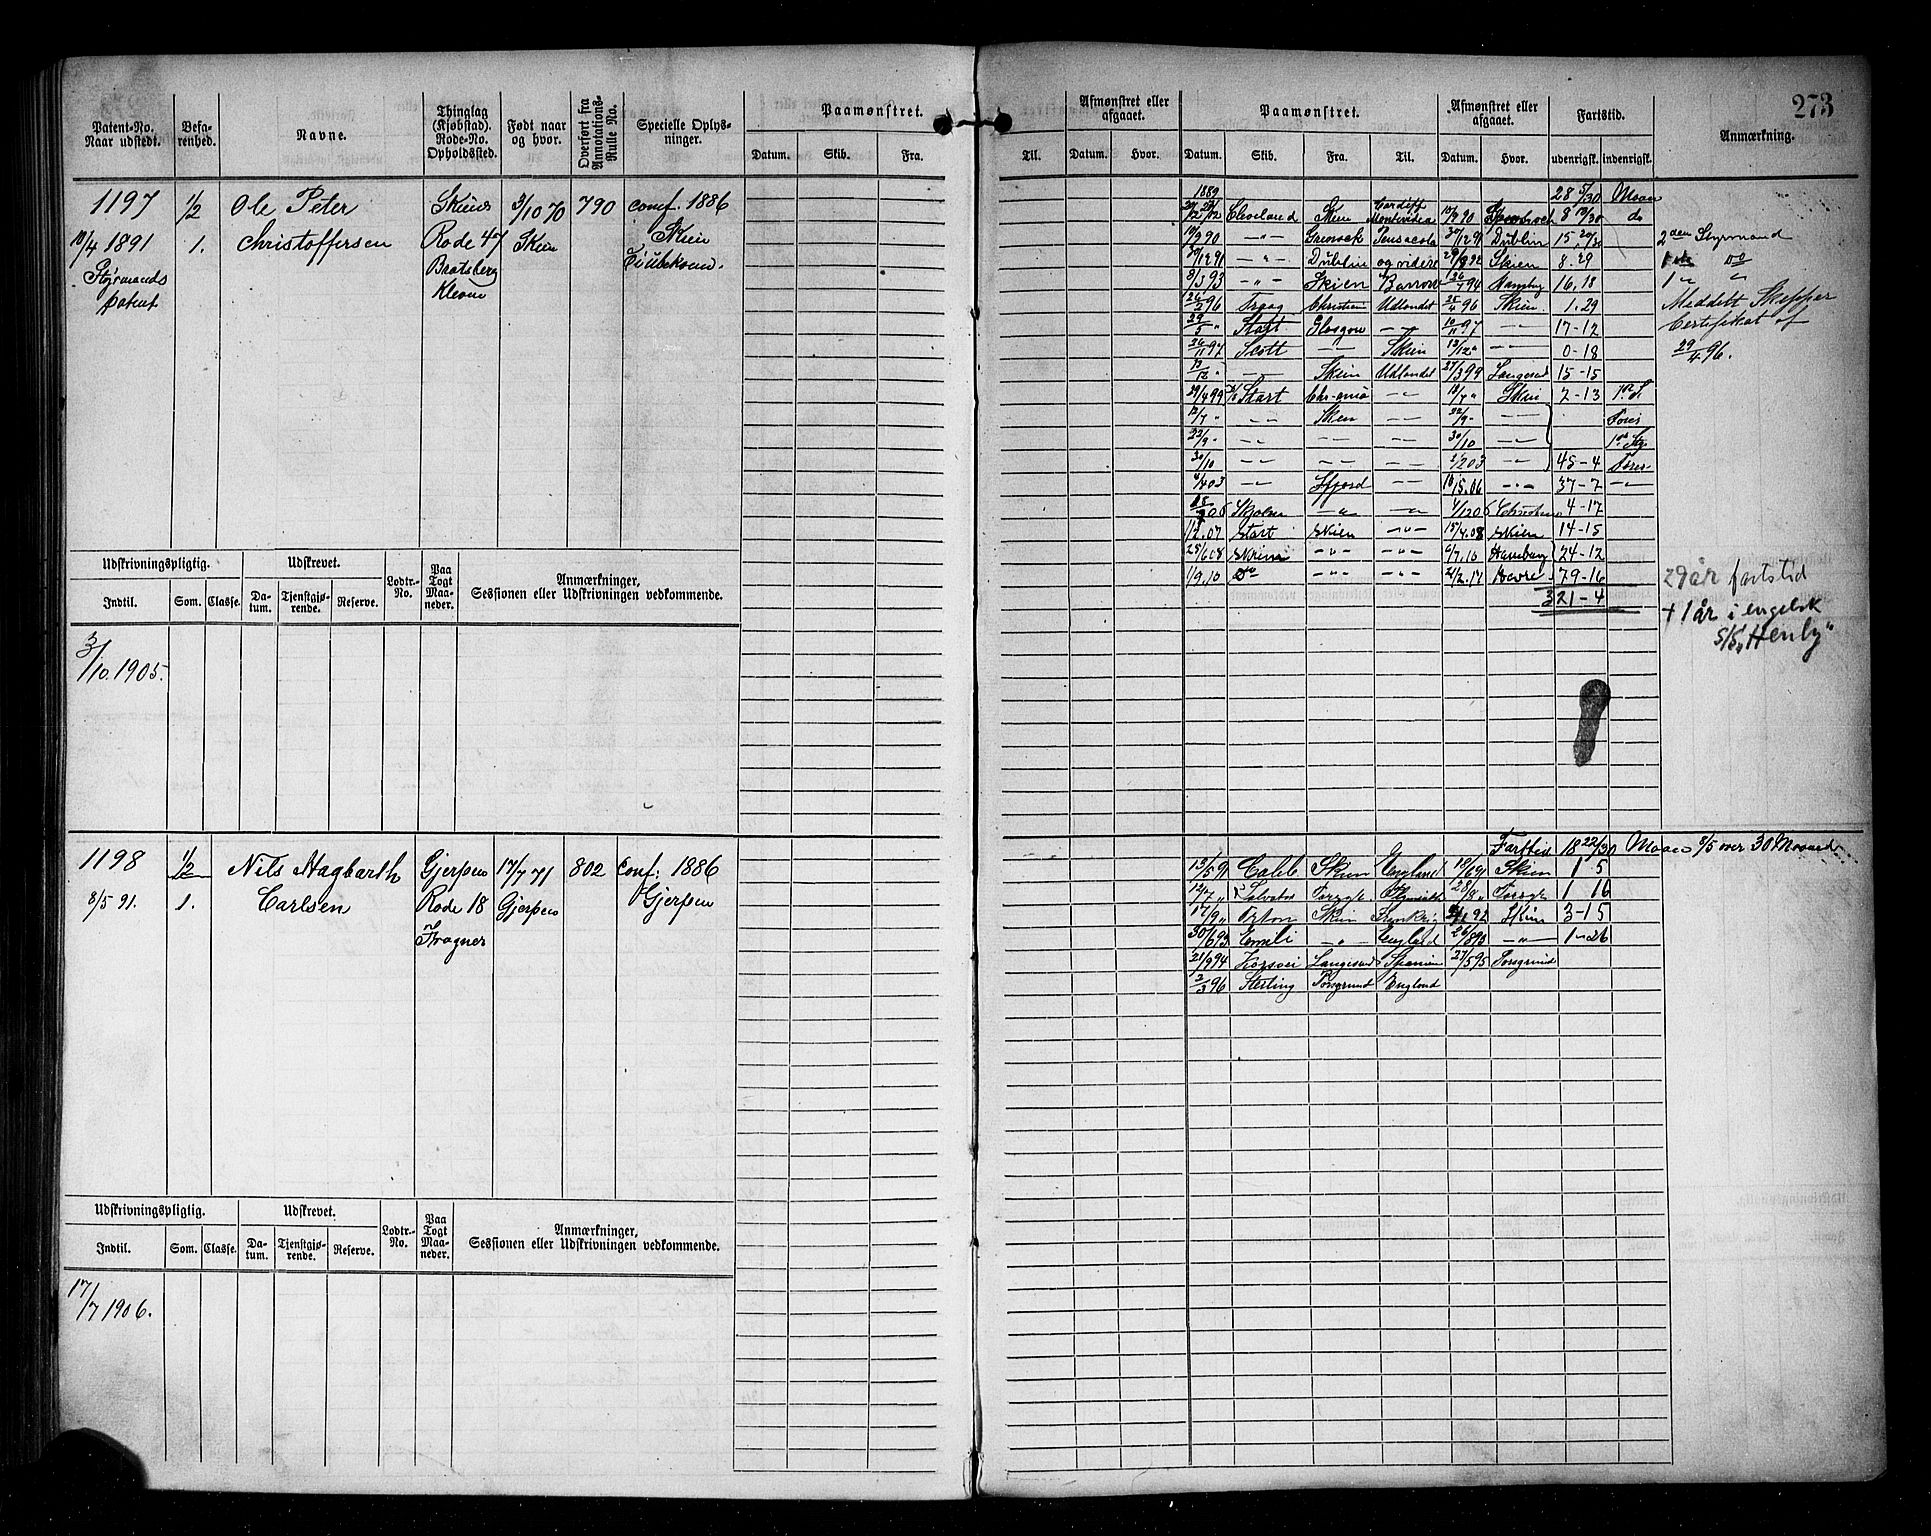 273
Patent-No. Naar udstedt.
Befarenhed.
Navne.
Thinglag (Kjøbstad). Rode-No. Opholdssted.
Født naar og hvor.
Overført fra Annotations-Rulle No.
Specielle Oplysninger.
Paamønstret.
Datum. Skib. Fra. Til.
Afmønstret eller afgaaet.
Datum. Hvor.
Paamønstret.
Datum. Skib. Fra. Til.
Afmønstret eller afgaaet.
Datum. Hvor.
Fartstid.
udenrigsk. indenrigsk.
Anmærkning.
1197 1/2 Ole Peter Skiens 3/10 70 790 conf. 1886
10/4 1891 1. Christoffersen Rode 47 Skien Skien
Styrmands Bratsberg
patent Kleven
1889 28 5/30 Maan
Cleveland Skien Cardiff Montevideo 8 19/30 do
10/9 90 -"- Grenock Pensacola 30/12 91 Dublin 15. 20/30 2den Styrmand
30/12 91 -"- Dublin og videre 29/9 92 Skien 8.29
3/5 93 -"- Skien Barrow 26/7 94 16.18 1 " "
26/2 96 Christian Udlandet 28/4 96 Skien. 1.29 Meddelt Skipper
29/5 " Start Glasgow -"- 10/11 97 -"- 17-12 Certifikat af
26/11 97 Scott -"- Skien 12/12 " -"- 0-18 29/4 96.
12/12 " -"- Skien Udlandet 27/3 99 Langesund 15-15
29/4 99 Start Chr-ania -"- 12/7 " Skien 2-13
12/7 " -"- Skien -"- 22/9 - -"-
22/9 - -"- -"- -"- 30/10 -"-
30/10 -"- -"- -"- 2/2 03 -"- 45-4
4/4 03 -"- -"- 10/5.06 -"- 37-7 -"-
-"- -"- 4/12 06 4-17
1/2.07 Start Skien -"- 15/4.08 Skien 14-15
25/6 08 Skrim -"- -"- 6/7.10 Hamburg 24-12
1/9.10 Do -"- -"- 21/2.17 Havre 79-16
321-4
29 år fartstid
+ 1 år i engelsk
S/S „Henly"
Udskrivningspligtig.
Udskrevet.
Lodtr.-No.
Paa Togt Maaneder.
Anmærkninger,
Sessionen eller Udskrivningen vedkommende.
Indtil. Som. Classe. Datum. Tjenstgjørende. Reserve.
3/10. 1905.
1198 1/2 Nils Hagbarth Gjerpen 17/7 71 802 Conf: 1886
8/5 91. 1. Carlsen Rode 18 Gjerpen Gjerpen
Fragner
Fartstid 18 22/30 Maan 8/5 over 30 Maaned
13/5 91 Caleb Skien England 18/6 91 Skien 1 5
12/7 " Salvator 28/8 " 1 16
17/9 " Orton Skien 92 Skien 3-15
30/6 93 Emeli -"- England 26/8 93 -"- 1-26
21/9 94 Korsvei Langesund Spanien 27/5 95 Porsgrund
2/3 96 Sterling Porsgrund England
Udskrivningspligtig.
Udskrevet.
Lodtr.-No.
Paa Togt Maaneder.
Anmærkninger,
Sessionen eller Udskrivningen vedkommende.
Indtil. Som. Classe. Datum. Tjenstgjørende. Reserve.
17/7 1906.